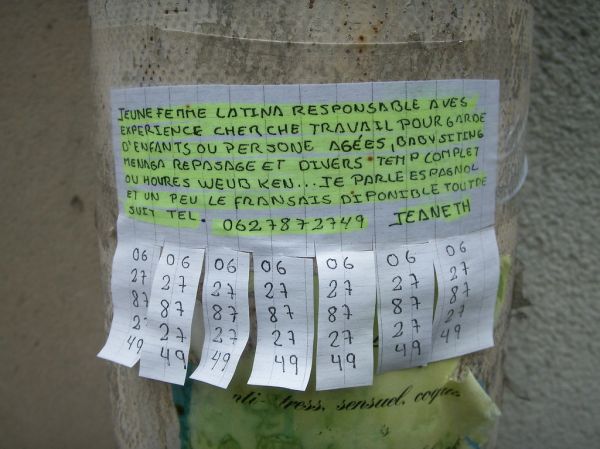 JEUNE FEMME LATINA RESPONSABLE AVES
EXPERIENCE CHERCHE TRAVAIL POUR GARDE
D'ENFANTS OU PERSONE AGÉES, BABY SITING
MENAGA REPASAGE ET DIVERS TEMP COMPLET
OU HOURES WEUB KEN... JE PARLE ESPAGNOL
ET UN PEU LE FRANSAIS DIPONIBLE TOUTDE
SUIT TEL. 0627872749 JEANETH
06
27
87
2
49
06
27
87
27
49
06
27
87
27
49
06
27
87
27
49
06
27
87
27
49
06
27
87
27
49
06
27
87
27
49
ress, sensuel, coqu